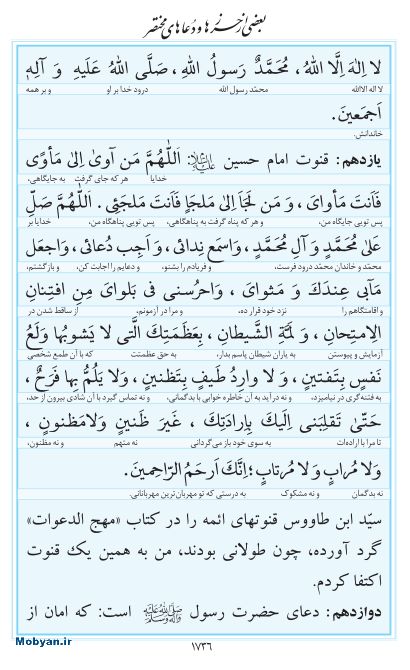 بعضی از حرزها و دعاهای مختصر
لا اِلٰهَ اِلَّا اللهُ، مُحَمَّدٌ رَسولُ اللهِ، صَلَّی اللهُ عَلَیهِ وَ آلِهِ
لا اله الاالله محمّد رسول الله درود خدا بر او و بر همه
اَجمَعینَ.
خاندانش.
یازدهم: قنوت امام حسین علیه‌السلام: اَللّٰهُمَّ مَن آویٰ اِلیٰ مَأوًی
خدایا هر که جای گرفت به جایگاهی،
فَاَنتَ مَأوایَ، وَ مَن لَجَاَ اِلیٰ مَلجَاٍ فَاَنتَ مَلجَئی. اَللّٰهُمَّ صَلِّ
پس تویی جایگاه من، و هر که پناه گرفت به پناهگاهی، پس تویی پناهگاه من، خدایا بر
عَلیٰ مُحَمَّدٍ وَ آلِ مُحَمَّدٍ، وَاسمَع نِدائی، وَ اَجِب دُعائی، وَاجعَل
محمّد و خاندان محمّد درود فرست، و فریادم را بشنو، و دعایم را اجابت کن، و بازگشتم،
مَآبی عِندَكَ وَ مَثوایَ، وَاحرُسنی فی بَلوایَ مِن افتِنانِ
و اقامتگاهم را نزد خود قرار ده، و مرا در آزمونم، از ساقط شدن در
الِامتِحانِ، وَ لَمَّةِ الشَّیطانِ، بِعَظَمَتِكَ الَّتی لا یَشوبُها وَلَعُ
آزمایش و پیوستن به یاران شیطان پاسم بدار، به حق عظمتت که با آن طمع شخصی
نَفسٍ بِتَفتینٍ، وَ لا وارِدُ طَیفٍ بِتَظنینٍ، وَلا یَلُمُّ بِها فَرَحٌ،
به فتنه‌گری در نیامیزد، و نه در آید به آن خاطره خوابی با بدگمانی، و نه تماس گیرد با آن شادی بیرون از حد،
حَتّیٰ تَقلِبَنی اِلَیكَ بِاِرادَتِكَ، غَیرَ ظَنینٍ وَلا مَظنونٍ،
تا مرا با اراده‌ات به سوی خود باز می‌گردانی نه متهم و نه مظنون،
وَلا مُرابٍ وَ لا مُرتابٍ؛ اِنَّكَ اَرحَمُ الرّاحِمینَ.
نه بدگمان و نه مشکوک به درستی که تو مهربان‌ترین مهربانانی.
سیّد ابن طاووس قنوتهای ائمه را در کتاب «مهج الدعوات»
گرد آورده، چون طولانی بودند، من به همین یک قنوت
اکتفا کردم.
دوازدهم: دعای حضرت رسول صلی الله علیه وآله وسلم است: که امان از
Mobyan.ir
۱۷۳۶